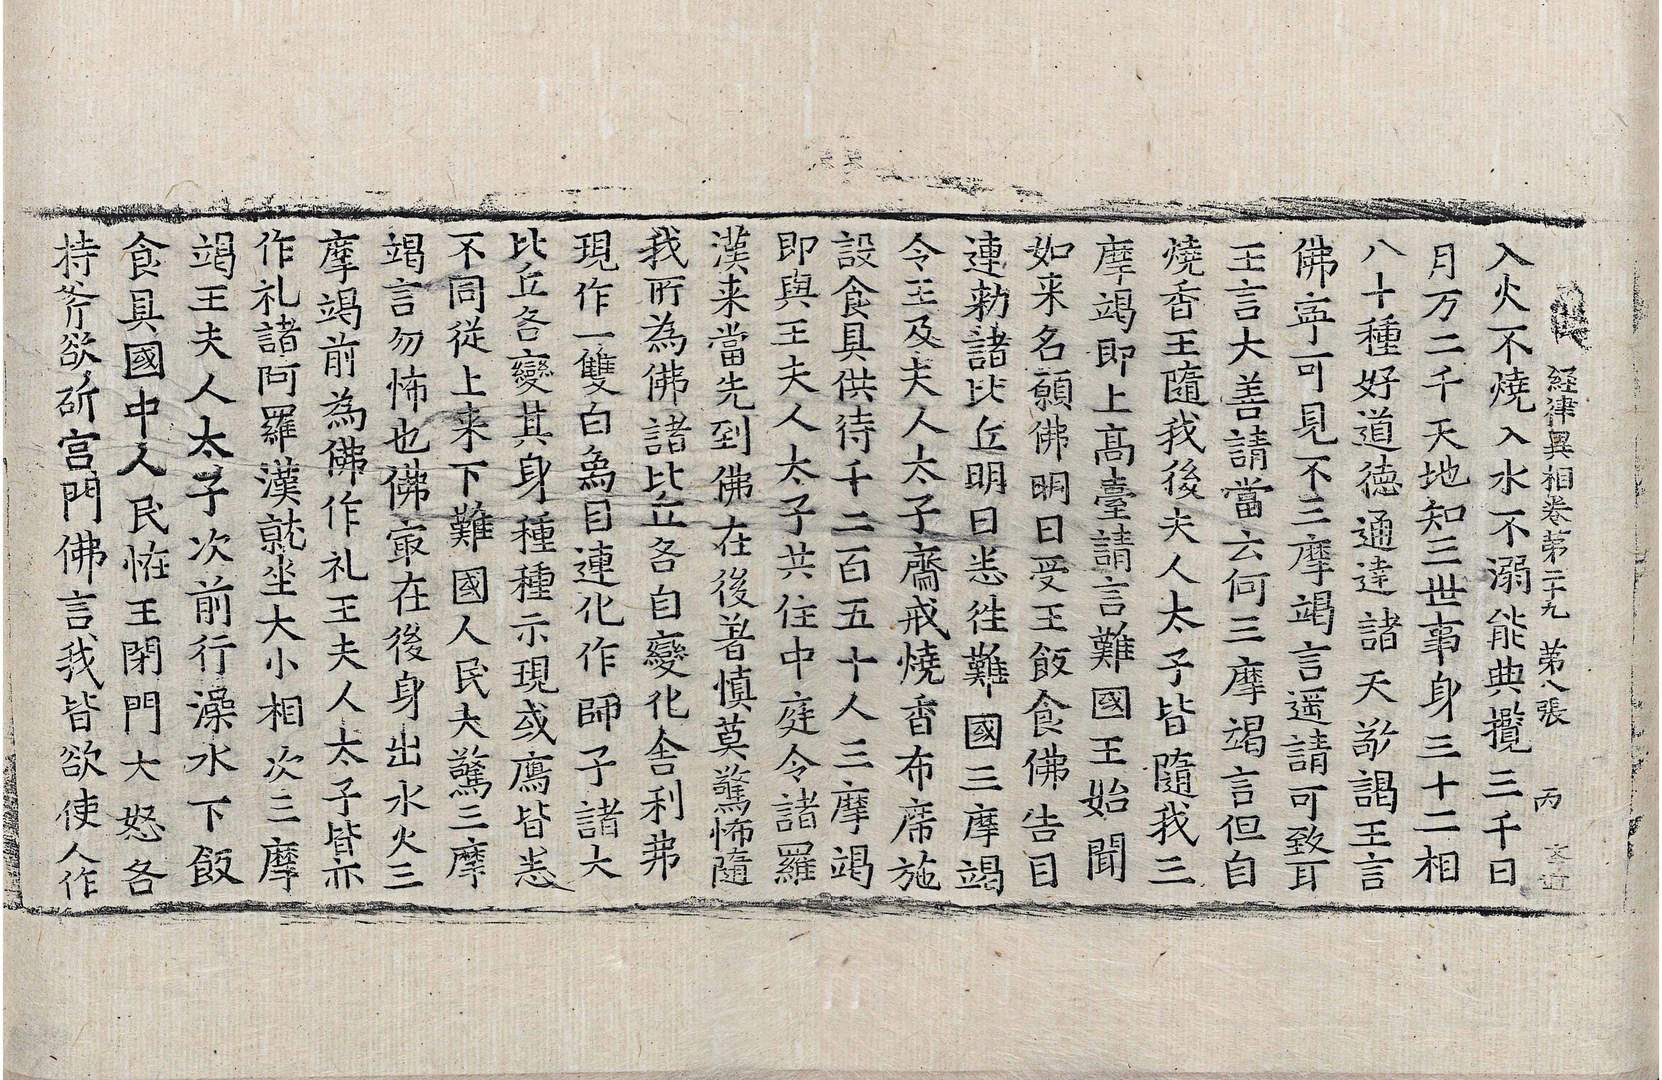 経律異相卷第二十九 第八張 丙
入火不燒入水不溺能典攬三千日
月万二千天地知三世事身三十二相
八十種好道德通達諸天敬謁王言
佛寕可見不三摩竭言遥請可致耳
王言大善請當云何三摩竭言但自
燒香王隨我後夫人太子皆隨我三
摩竭即上髙臺請言難國王始聞
如来名願佛明日受王飯食佛告目
連勅諸比丘明日悉徃難國三摩竭
令王及夫人太子齋戒燒香布席施
設食具供待千二百五十人三摩竭
即與王夫人太子共住中庭令諸羅
漢来當先到佛在後著慎莫驚怖隨
我所為佛諸比丘各自變化舍利弗
現作一雙白象目連化作師子諸大
比丘各變其身種種示現或鴈皆悉
不同從上来下難國人民大驚三摩
竭言勿怖也佛㝡在後身出水火三
摩竭前為佛作礼王夫人太子皆亦
作礼諸阿羅漢就坐大小相次三摩
竭王夫人太子次前行澡水下飯
食具國中人民恠王閉門大怒各
持斧欲斫宫門佛言我皆欲使人作